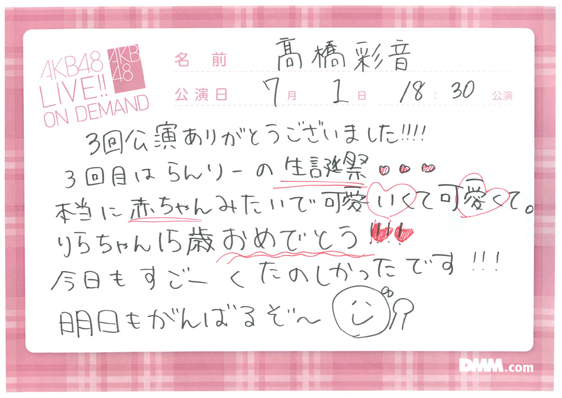 AKB48
LIVE!!
ON DEMAND
AKB
48
名前 髙橋彩音
公演日 7月 1日 18:30 公演
3回公演ありがとうございました!!!!
3回目はらんりーの生誕祭
本当に赤ちゃんみたいで可愛いくて可愛くて。
りらちゃん15歳おめでとう!!!
今日もすごーくたのしかったです!!!
明日もがんばるぞ〜
DMM.com